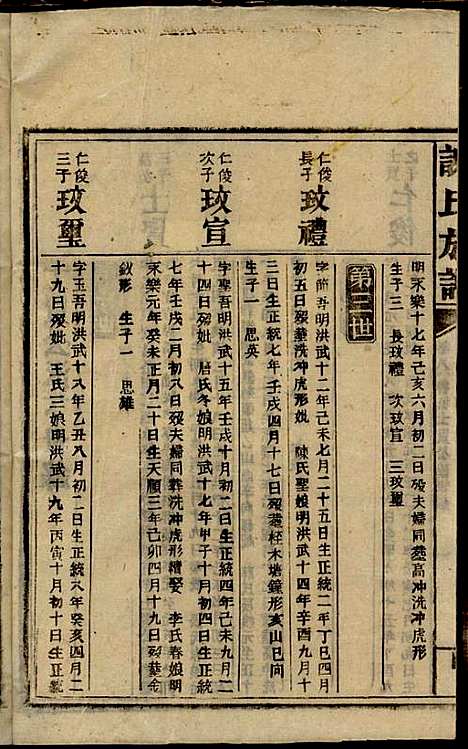 氏族譜
明永樂十七年己亥六月初二日歿夫婦同塟高冲洗冲虎形
生子三 長玟禮 次玟宣 三玟璽
第三世
仁俊長子 玟禮
字節吾明洪武十二年己未七月二十五日生正統二年丁巳四月
初五日歿塟洗冲虎形妣 陳氏聖娘明洪武十四年辛酉九月十
三日生正統七年壬戌四月十七日歿塟枉木塘鐘形亥山巳向
生子一 思英
仁俊次子 玟宣
字聖吾明洪武十五年壬戌十月初二日生正統四年己未九月二
十四日歿妣 唐氏冬娘明洪武十七年甲子十月初四日生正統
七年壬戌二月初八日歿夫婦同塟洗冲虎形續娶 李氏春娘明
永樂元年癸未正月二十日生天順三年己卯四月十九日歿塟金
釵形 生子一 思雄
仁俊三子 玟璽
字玉吾明洪武十八年乙丑八月初二日生正統八年癸亥四月二
十九日歿妣 王氏三娘明洪武十九年丙寅十月初十日生正統